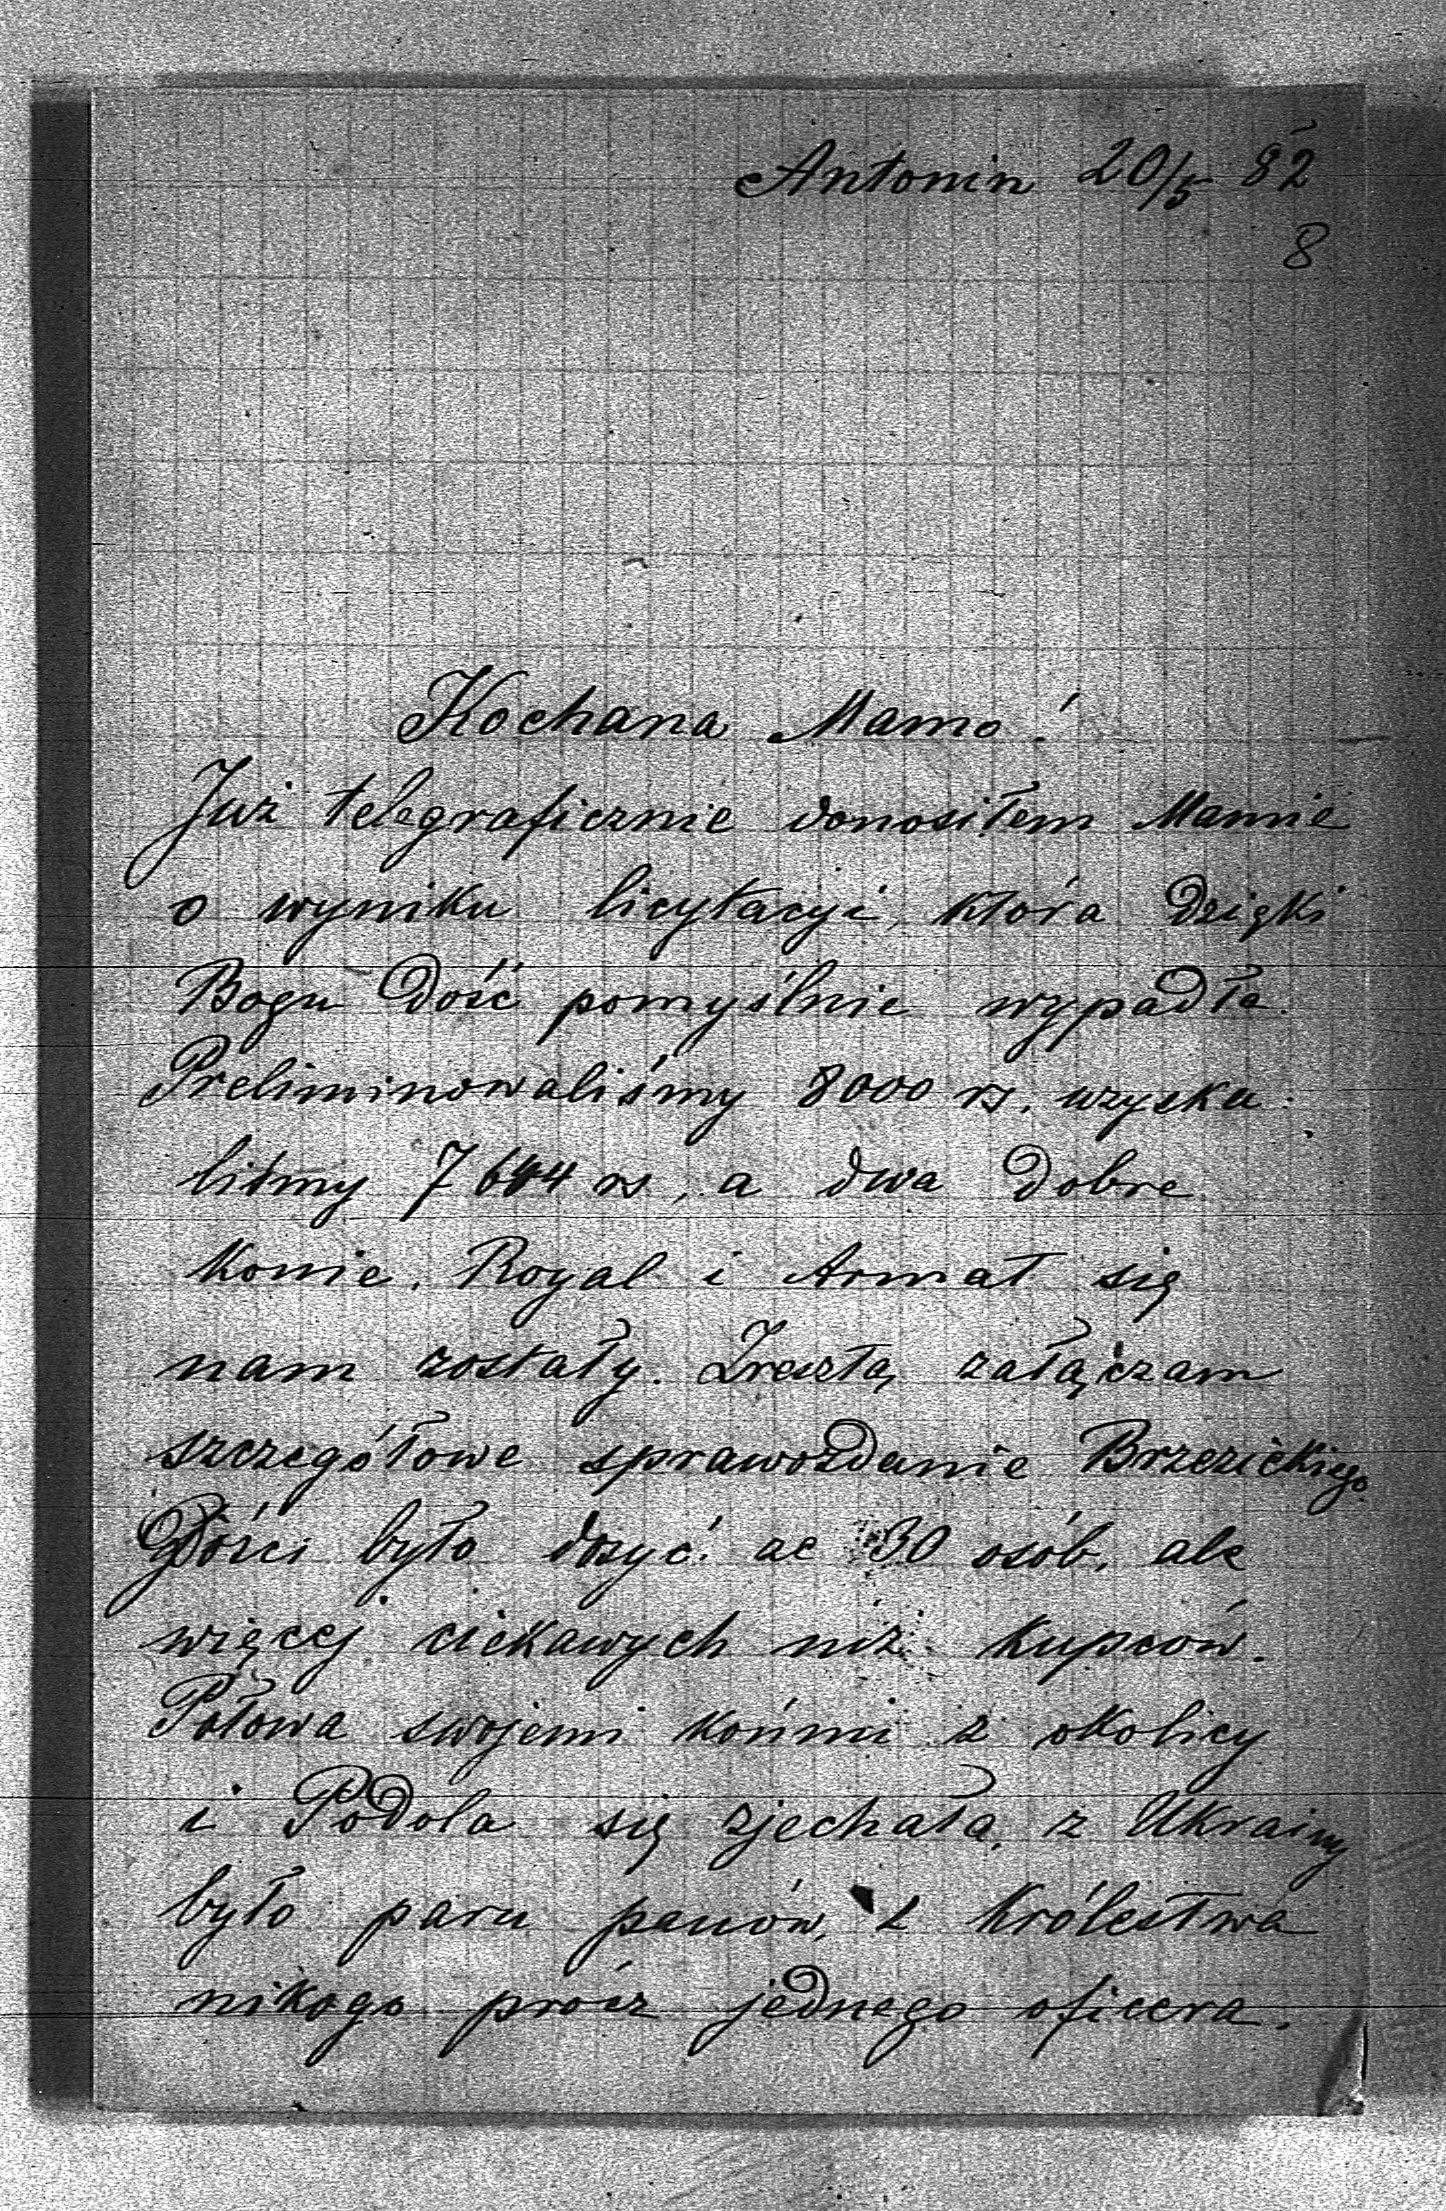 Antonin 20/5 82
8
Kochana Mamo!
Już telegraficznie donosiłem Mamie
o wyniku licytacyi, która dzięki
Bogu dość pomyślnie wypadła.
Preliminowaliśmy 8000 rs. uzyska
liśmy 7644 rs, a dwa dobre
konie, Royal i Armat się
nam zostały. Zresztą załączam
szczegółowe sprawozdanie Brzezickiego.
Gości było dosyć, ze 30 osób, ale
więcej ciekawych niż kupców.
Połowa swojemi końmi z okolicy
i Podola się zjechała, z Ukrainy
było paru panów, z Królestwa
nikogo prócz jednego oficera.